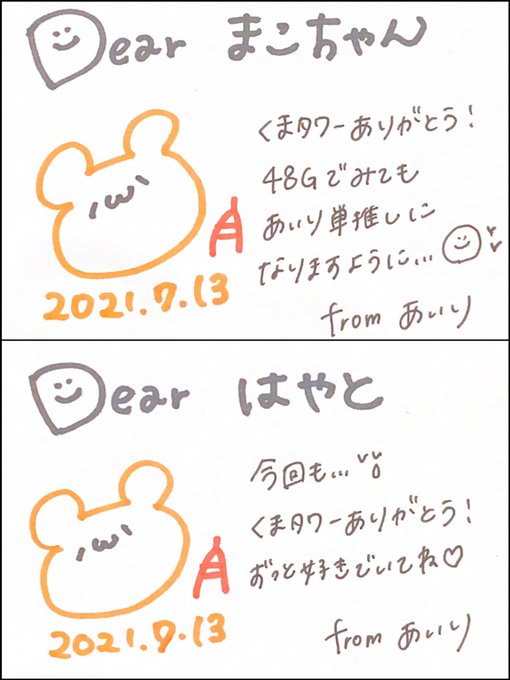 Dear まこちゃん
くまタワーありがとう！
48Gでみても
あいり単推しに
なりますように...
2021.7.13
from あいり
Dear はやと
今回も...
くまタワーありがとう！
ずっと好きでいてね♡
2021.7.13
from あいり